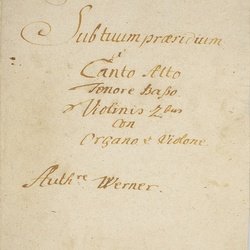 Sub tuum præsidium
à
Canto Alto
Tenore Basso
Violinis 2bus
Con
Organo è Violone.
Auth:re Werner.